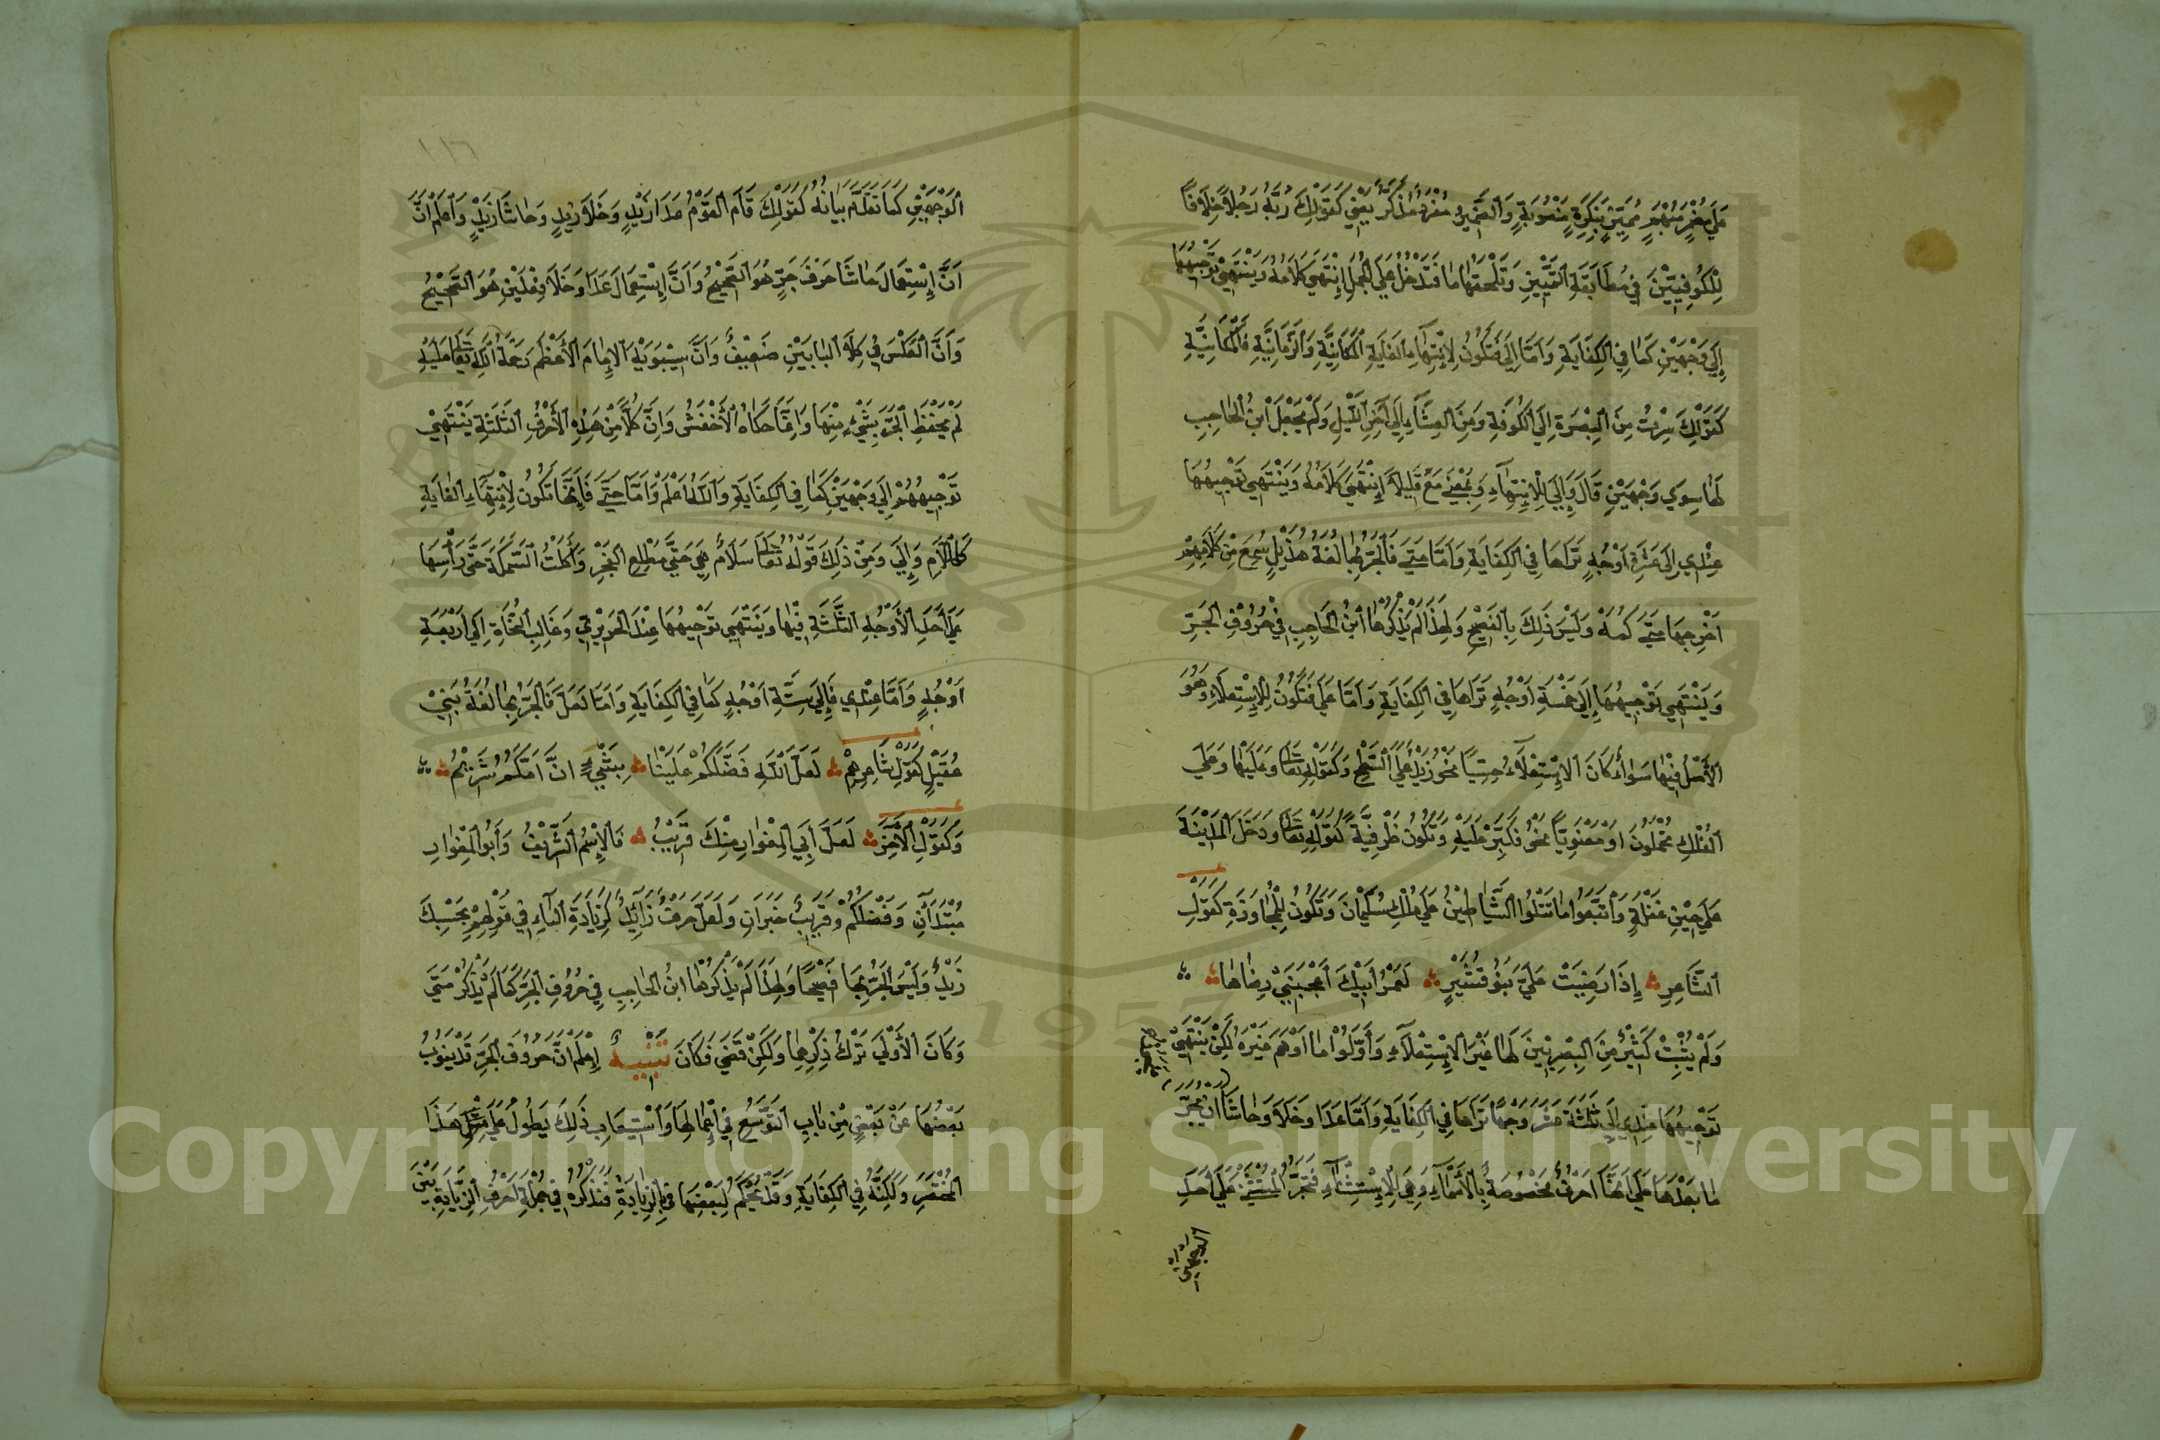 عَلَي مُضْمَرٍ مُبْهَمٍ مُمَيَّزٍ بِنَكِرَةٍ مَنْصُوبَةٍ وَالضَّمِيرُ مُفْرَدٌ مُذَكَّرٌ يَعْنِي كَقَوْلِكَ رُبَّهُ رَجُلاً خِلَافًا
لِلْكُوفِيِّيْنَ فِي مُطَابَقَةِ التَّمْيِيْزِ وَتَلْحَقُهَا مَا فَتَدْخُلُ عَلَي الْجُمَلِ اِنْتَهَي كَلَامُهُ وَيَنْتَهِيْ تَوْجِيهُهَا
اِلَي وَجْهَيْنِ كَمَا فِي الْكِفَايَةِ وَاَمَّا اِلَي فَتَكُونُ لِاِنْتِهَاءِ الْغَايَةِ الْمَكَانِيَّةِ وَالزَّمَانِيَّةِ فَالْمَكَانِيَّةِ
كَقَوْلِكَ سِرْتُ مِنَ الْبِصْرَةِ اِلَي الْكُوفَةِ وَمِنَ الْعِشَاءِ اِلَي آخِرِ اللَّيْلِ وَلَمْ يَجْعَلْ ابْنُ الْحَاجِبِ
لَهَا سِوَي وَجْهَيْنِ قَالَ وَاِلَيَ لِلْاِنْتِهَآءِ وَبِمَعْنَي مَعْ قَلِيْلاً اِنْتَهَيَ كَلَامُهُ وَيَنْتَهِي تَوْجِيهُهَا
عِنْدِي اِلَي عَشْرَةِ اَوْجُهٍ تَرَاهَا فِي الْكِفَايَةِ وَاَمَّا مَتَيَ فَالْجَرُّ بِهَا لُغَةُ هُذَيْلٍ سُمِعَ مِنْ كَلَامِهِمْ
اَخْرِجْهَا مَتَيَ كُمِّهْ وَلَيْسَ ذَلِكَ بِالْفَصِيْحِ وَلِهَذَا لَمْ يَذْكُرْهَا ابْنُ الْحَاجِبِ فِي حُرُوْفِ الْجَرِّ
وَيَنْتَهِي تَوْجِيْهُهَا اِلَي خَمْسَةِ اَوْجُهٍ تَرَاهَا فِي الْكِفَايَةِ وَاَمَّا عَلَي فَتَكُونُ لِلْاِسْتِعْلَآءِ وَهُوَ
الْأَصْلُ فِيْهَا سَوَاءٌ كَانَ الاِسْتِعْلَآءُ حِسِّيًا نَحْوُ زَيْدٌ عَلَي السَّطْحِ وَكَقَوْلِهِ تَعَالَى وَعَلَيْهَا وَعَلَي
الْفُلْكِ تُحْمَلُونَ اَوْ مَعْنَوِيّاً نَحْوُ تَكَبَّرَ عَلَيْهِ وَتَكُونُ ظَرْفِيَّةً كَقَوْلِهِ تَعَالَى وَدَخَلَ الْمَدِيْنَةَ
عَلَي حِيْنِ غَفْلَةٍ وَاتَّبَعُوا مَا تَتْلُوا الشَّيَاطِيْنُ عَلَي مُلْكِ سُلَيْمَانَ وَتَكُونُ لِلْمُجَاوَزَةِ كَقَوْلِ
الشَّاعِرِ اِذَا رَضِيَتْ عَلَيَّ بَنُو قُشَيْرٍ لَعَمْرُ اَبِيْكَ اَعْجَبَنِيْ رِضَاهَا
وَلَمْ يُثْبِتْ كَثِيْرٌ مِنَ الْبِصْرِيِّيْنَ لَهَا غَيْرَ الْاِسْتِعْلَآءِ وَأَوَّلُوْا مَا اَوْهَمَ غَيْرَهُ لَكِنْ يَنْتَهِيْ
تَوْجِيْهُهَا عِنْدِي اِلَي ثَلَثَةَ عَشَرَ وَجْهًا تَرَاهَا فِي الْكِفَايَةِ وَاَمَّا عَدَا وَخَلَا وَحَاشَا اِنْ يُجَرَّ
مَا بَعْدَهَا عَلَي اَنَّهَا اَحْرُفٌ مَخْصُوصَةٌ بِالْأَسْمَآءِ وَهِيَ لِلْاِسْتِثْنَآءِ فَتَجُرُّ الْمُسْتَثْنَيَ عَلَي اَحَدِ
الوجهين
الْوَجْهَيْنِ كَمَا تَقَدَّمَ بَيَانُهُ كَقَوْلِكَ قَامَ الْقَوْمُ عَدَا زَيْدٍ وَخَلَا زَيْدٍ وَحَاشَا زَيْدٍ وَاعْلَمْ اَنَّ
اَنَّ اِسْتِعْمَالَ حَاشَا حَرْفَ جَرٍّ هُوَ الصَّحِيْحُ وَاَنَّ اِسْتِعْمَالَ عَدَا وَخَلَا فِعْلَيْنِ هُوَ الصَّحِيْحُ
وَاَنَّ الْعَكْسَ فِي كِلَا الْبَابَيْنِ ضَعِيْفٌ وَاَنَّ سِيْبَوَيْهِ الْإِمَامَ الْأَعْظَمَ رَحْمَةُ اللهِ تَعَالَى عَلَيْهِ
لَمْ يَحْفَظِ الْجَرَّ بِشَيْءٍ مِنْهَا وَاِنَّمَا حَكَاهُ الْأَخْفَشُ وَاِنَّ كُلًّا مِنْ هَذِهِ الْأَحْرُفِ الثَّلَثَةِ يَنْتَهِيْ
تَوْجِيْهُهُمْ اِلَي وَجْهَيْنِ كَمَا فِي الْكِفَايَةِ وَاللهُ اَعْلَمُ وَاَمَّا حَتَّيَ فَاِنَّهَا تَكُونُ لِاِنْتِهَاءِ الْغَايَةِ
كَاللَّامِ وَاِلَي وَمِنْ ذَلِكَ قَوْلُهُ تَعَالَى سَلَامٌ هِيَ حَتَّيَ مَطْلَعِ الْفَجْرِ وَاَكَلْتُ السَّمَكَةَ حَتَّي رَأْسِهَا
عَلَي اَحَدِ الْأَوْجُهِ الثَّلَثَةِ فِيْهَا وَيَنْتَهِي تَوْجِيْهُهَا عِنْدَ الْحَرِيْرِيِّ وَغَالِبِ النُّحَاةِ اِلَي اَرْبَعَةِ
اَوْجُهٍ وَاَمَّا عِنْدِي فَاِلَي سِتَّةِ اَوْجُهٍ كَمَا فِي الْكِفَايَةِ وَاَمَّا لَعَلَّ فَالْجَرُّ بِهَا لُغَةُ بَنِيْ
عُقَيْلٍ كَقَوْلِ شَاعِرِهِمْ لَعَلَّ اللهِ فَضَّلَكُمْ عَلَيْنَا بِشَيْءٍ اَنَّ اُمَّكُمْ شَرِيْمُ
وَكَقَوْلِ الْآخَرَ لَعَلَّ اَبِي الْمِغْوَارِ مِنْكَ قَرِيْبُ فَالْاِسْمُ الشَّرِيْفُ وَاَبُو الْمِغْوَارِ
مُبْتَدَآنِ وَفَضَّلَكُمْ وَقَرِيْبٌ خَبَرَانِ وَلَعَلَّ حَرْفٌ زَائِدٌ كَزِيَادَةِ الْبَاءِ فِي قَوْلِهِمْ بِحَسْبِكَ
زَيْدٌ وَلَيْسَ الْجَرُّ بِهَا فَصِيْحًا وَلِهَذَا لَمْ يَذْكُرْهَا ابْنُ الْحَاجِبِ فِي حُرُوفِ الْجَرِّ كَمَا لَمْ يَذْكُرْ مَتَيَ
وَكَانَ الْأَوْلَي تَرْكُ ذِكْرِهِمَا وَلَكِنْ قَضَيَ فَكَانَ تَنْبِيْهٌ اِعْلَمْ اَنَّ حُرُوْفَ الْجَرِّ قَدْ يَنُوْبُ
بَعْضُهَا عَنْ بَعْضٍ مِنْ بَابِ التَّوَسُّعِ فِيْ اِعْمَالِهَا وَاسْتِيْعَابُ ذَلِكَ يَطُولُ عَلَي مِثْلِ هَذَا
الْمُخْتَصَرِ وَلَكِنَّهُ فِي الْكِفَايَةِ وَقَدْ يُحْكَمُ لِبَعْضِهَا فِي الزِّيَادَةِ فَنَذْكُرُهُ فِي جُمْلَةِ اَحْرُفِ الزِّيَادَةِ بَيْنَ
Copyright © King Saud University
1957